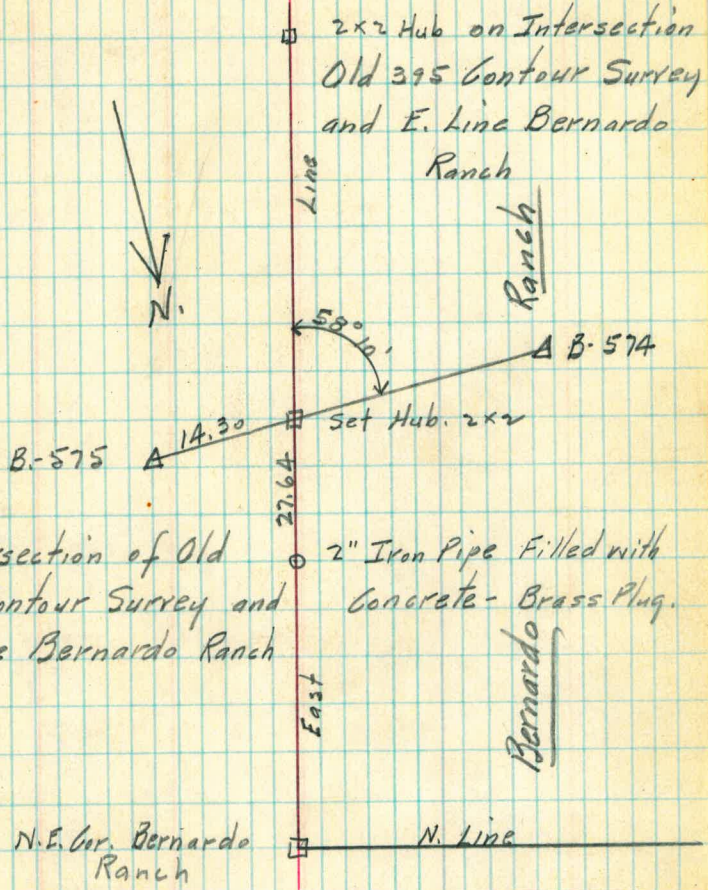 2x2 Hub on Intersection
Old 395 Contour Survey
and E. Line Bernardo
Ranch
Line
Ranch
N.
58° 10'
B-574
14.30
Set Hub. 2x2
B.-575
27.64
section of Old
ontour Survey and
e Bernardo Ranch
2" Iron Pipe Filled with
Concrete - Brass Plug.
East
Bernardo
N.E. Cor. Bernardo
Ranch
N. Line